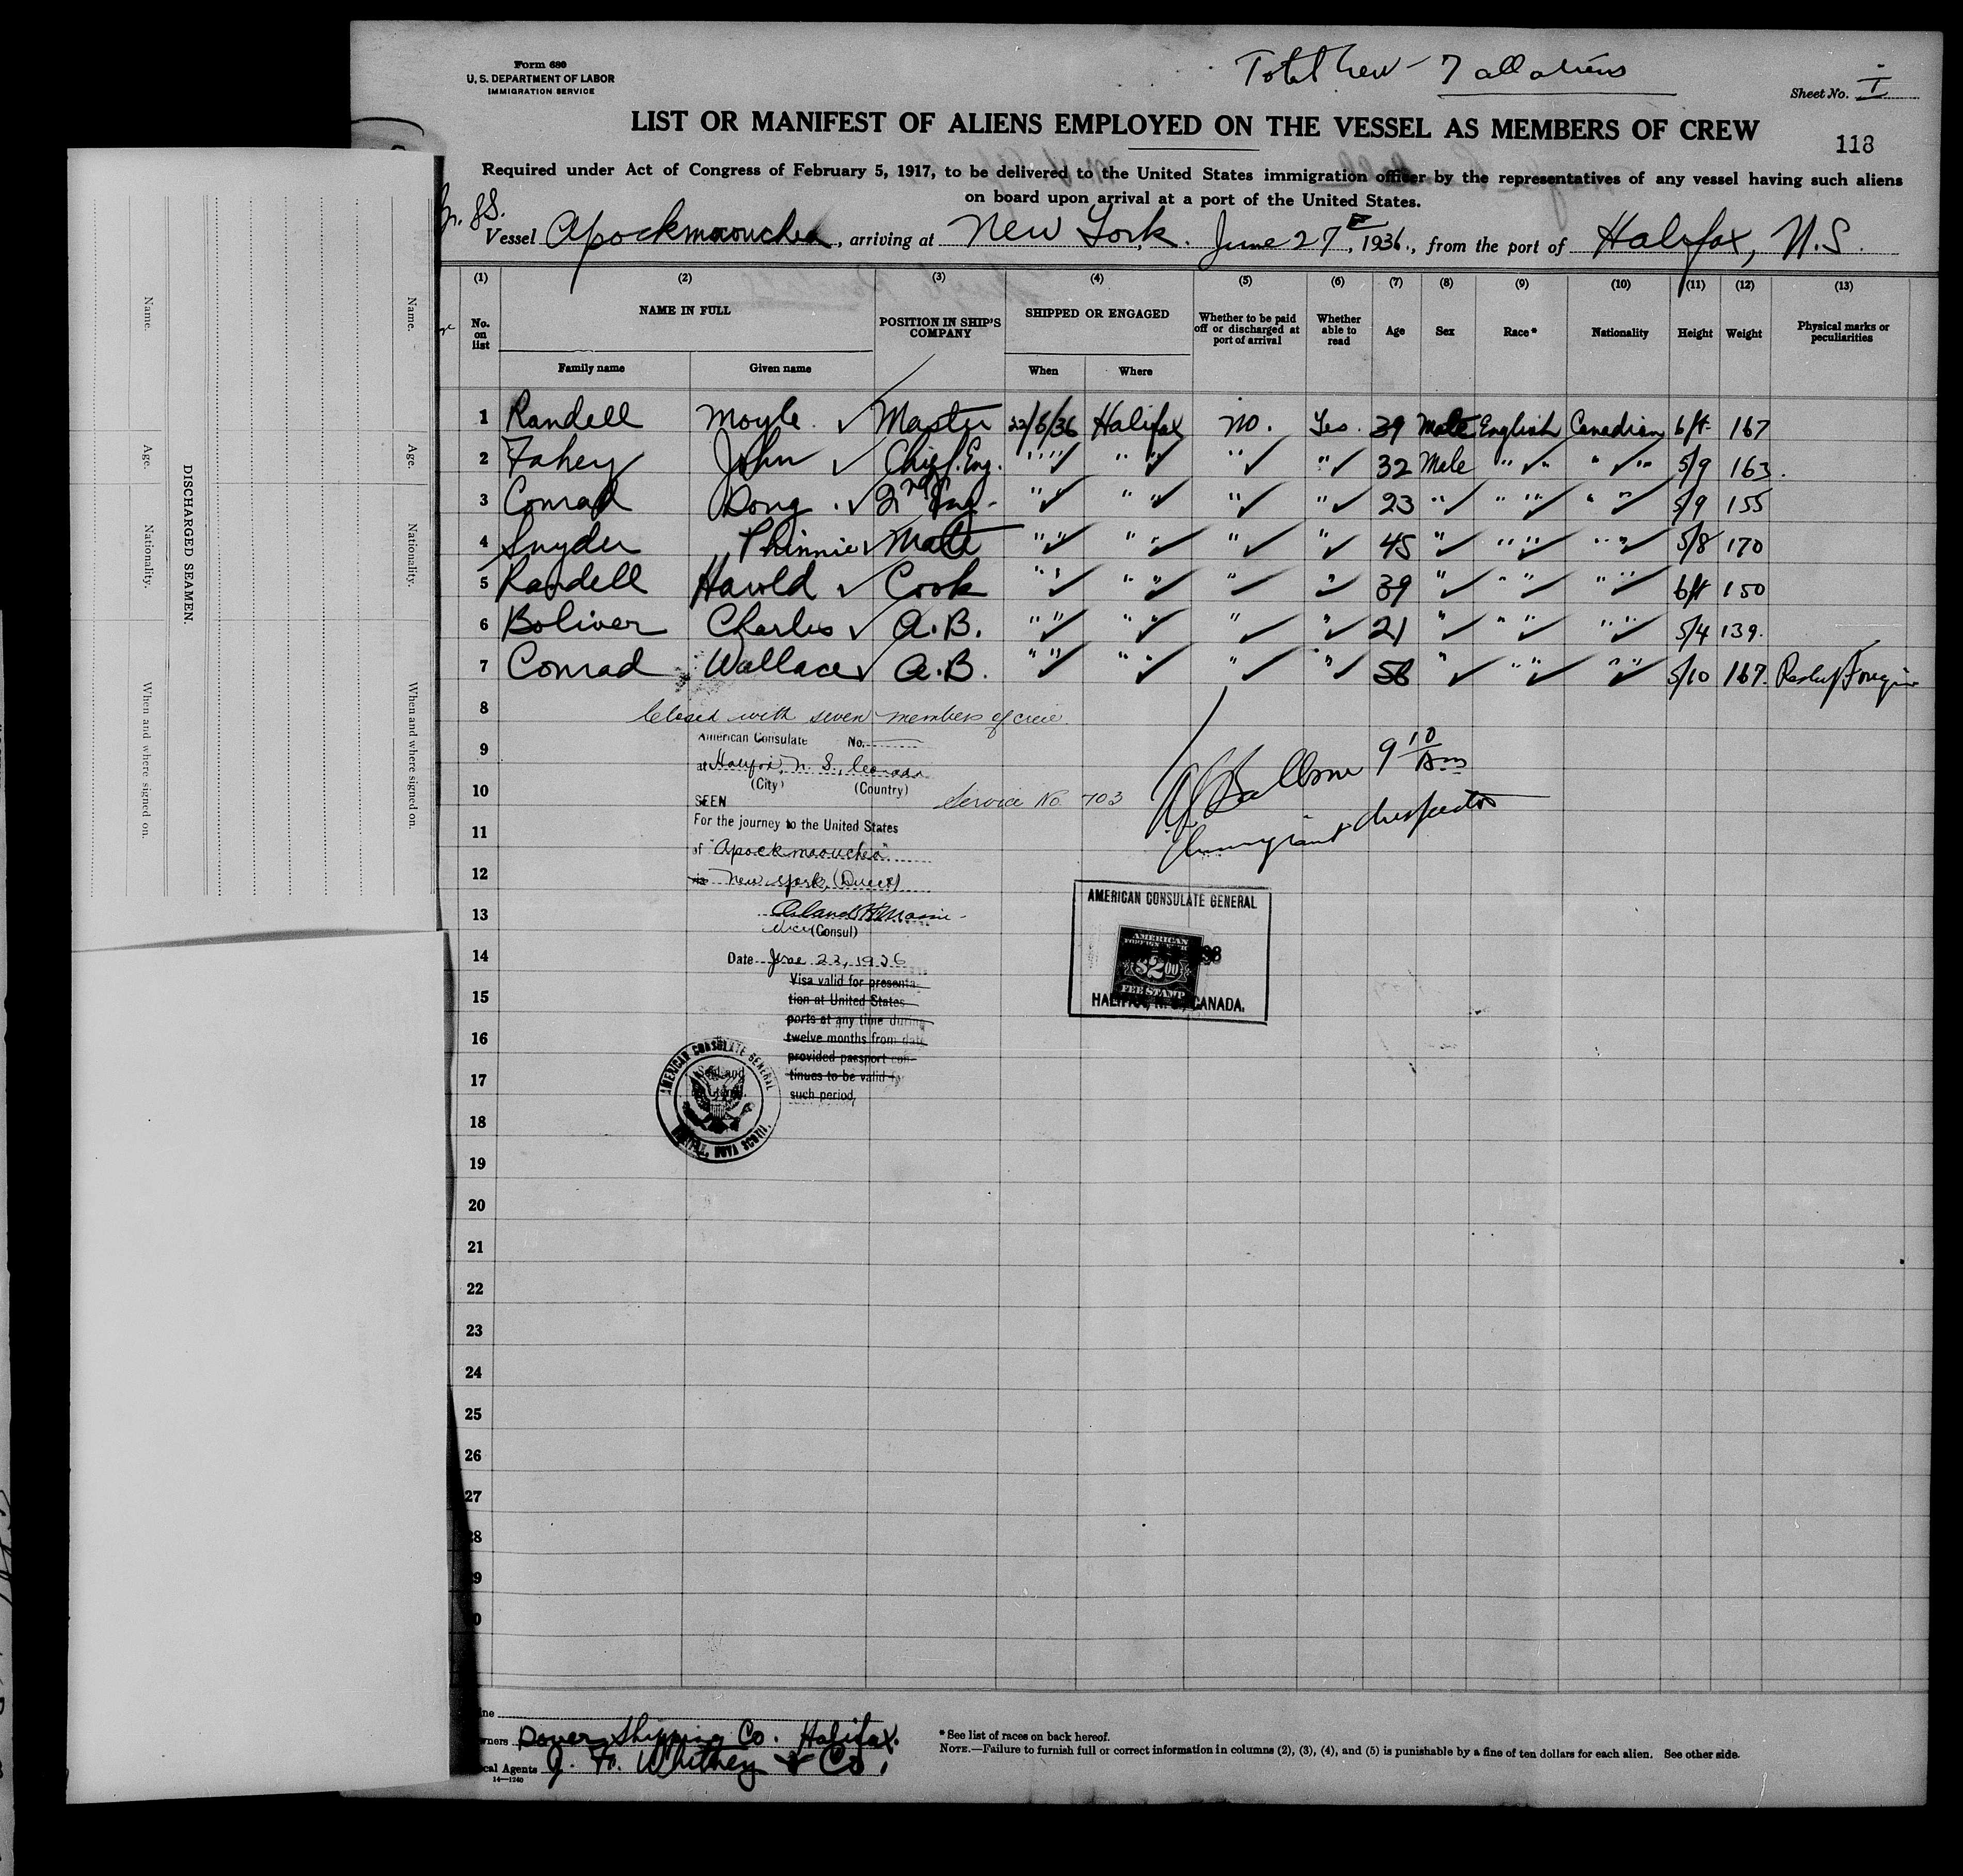 Form 680
U. S. DEPARTMENT OF LABOR
IMMIGRATION SERVICE
Total Crew - 7 all aliens
Sheet No. I
LIST OR MANIFEST OF ALIENS EMPLOYED ON THE VESSEL AS MEMBERS OF CREW
118
Required under Act of Congress of February 5, 1917, to be delivered to the United States immigration officer by the representatives of any vessel having such aliens
on board upon arrival at a port of the United States.
Br. SS.
Vessel Apockmouche, arriving at New York. June 27, 1936., from the port of Halifax, N.S.
(1) (2) (3) (4) (5) (6) (7) (8) (9) (10) (11) (12) (13)
No. on list NAME IN FULL Family name Given name POSITION IN SHIP'S COMPANY SHIPPED OR ENGAGED When Where Whether to be paid off or discharged at port of arrival Whether able to read Age Sex Race * Nationality Height Weight Physical marks or peculiarities
1 Randell Moyle. ✓ Master 22/6/36 Halifax No. Yes. 39 Male English Canadian 6ft 167
2 Fahey John ✓ Chief. Eng. " " ✓ " " ✓ " ✓ " ✓ 32 Male " ✓ " " ✓ " 5/9 163.
3 Conrad Doug. ✓ 2nd Eng. " " ✓ " " ✓ " ✓ " ✓ 23 " ✓ " " ✓ " " ✓ 5/9 155
4 Snyder Phinnie ✓ Mate " " ✓ " " ✓ " ✓ " ✓ 45 " ✓ " " ✓ " " ✓ 5/8 170
5 Randell Harold ✓ Cook " " ✓ " " ✓ " ✓ " ✓ 39 " ✓ " " ✓ " " ✓ 6ft 150
6 Boliver Charles ✓ A.B. " " ✓ " " ✓ " ✓ " ✓ 21 " ✓ " " ✓ " " ✓ 5/4 139.
7 Conrad Wallace ✓ A.B. " " ✓ " " ✓ " ✓ " ✓ 56 " ✓ " " ✓ " " ✓ 5/10 167.
8 Closed with seven members of crew.
9 American Consulate No.
at Halifax, N. S., Canada
(City) (Country)
10 SEEN
Service No. 703
9 10 Am
Immigrant Inspector
11 For the journey to the United States
of "Apockmouche"
12 via New York, (Direct)
13
Vice (Consul)
14 Date June 22, 1936
Visa valid for presenta-
15 tion at United States
ports at any time during
16 twelve months from date
provided passport con-
17 tinues to be valid for
such period.
AMERICAN CONSULATE GENERAL
AMERICAN
FOREIGN SERVICE
$2.00
FEE STAMP
HALIFAX, N. S., CANADA.
AMERICAN CONSULATE GENERAL
HALIFAX, NOVA SCOTIA.
18
19
20
21
22
23
24
25
26
27
28
29
30
Owners Dover Shipping Co. Halifax.
Local Agents J. F. Whitney & Co.
14—1240
* See list of races on back hereof.
NOTE.—Failure to furnish full or correct information in columns (2), (3), (4), and (5) is punishable by a fine of ten dollars for each alien. See other side.
DISCHARGED SEAMEN.
Name. Age. Nationality. When and where signed on.
Name. Age. Nationality. When and where signed on.